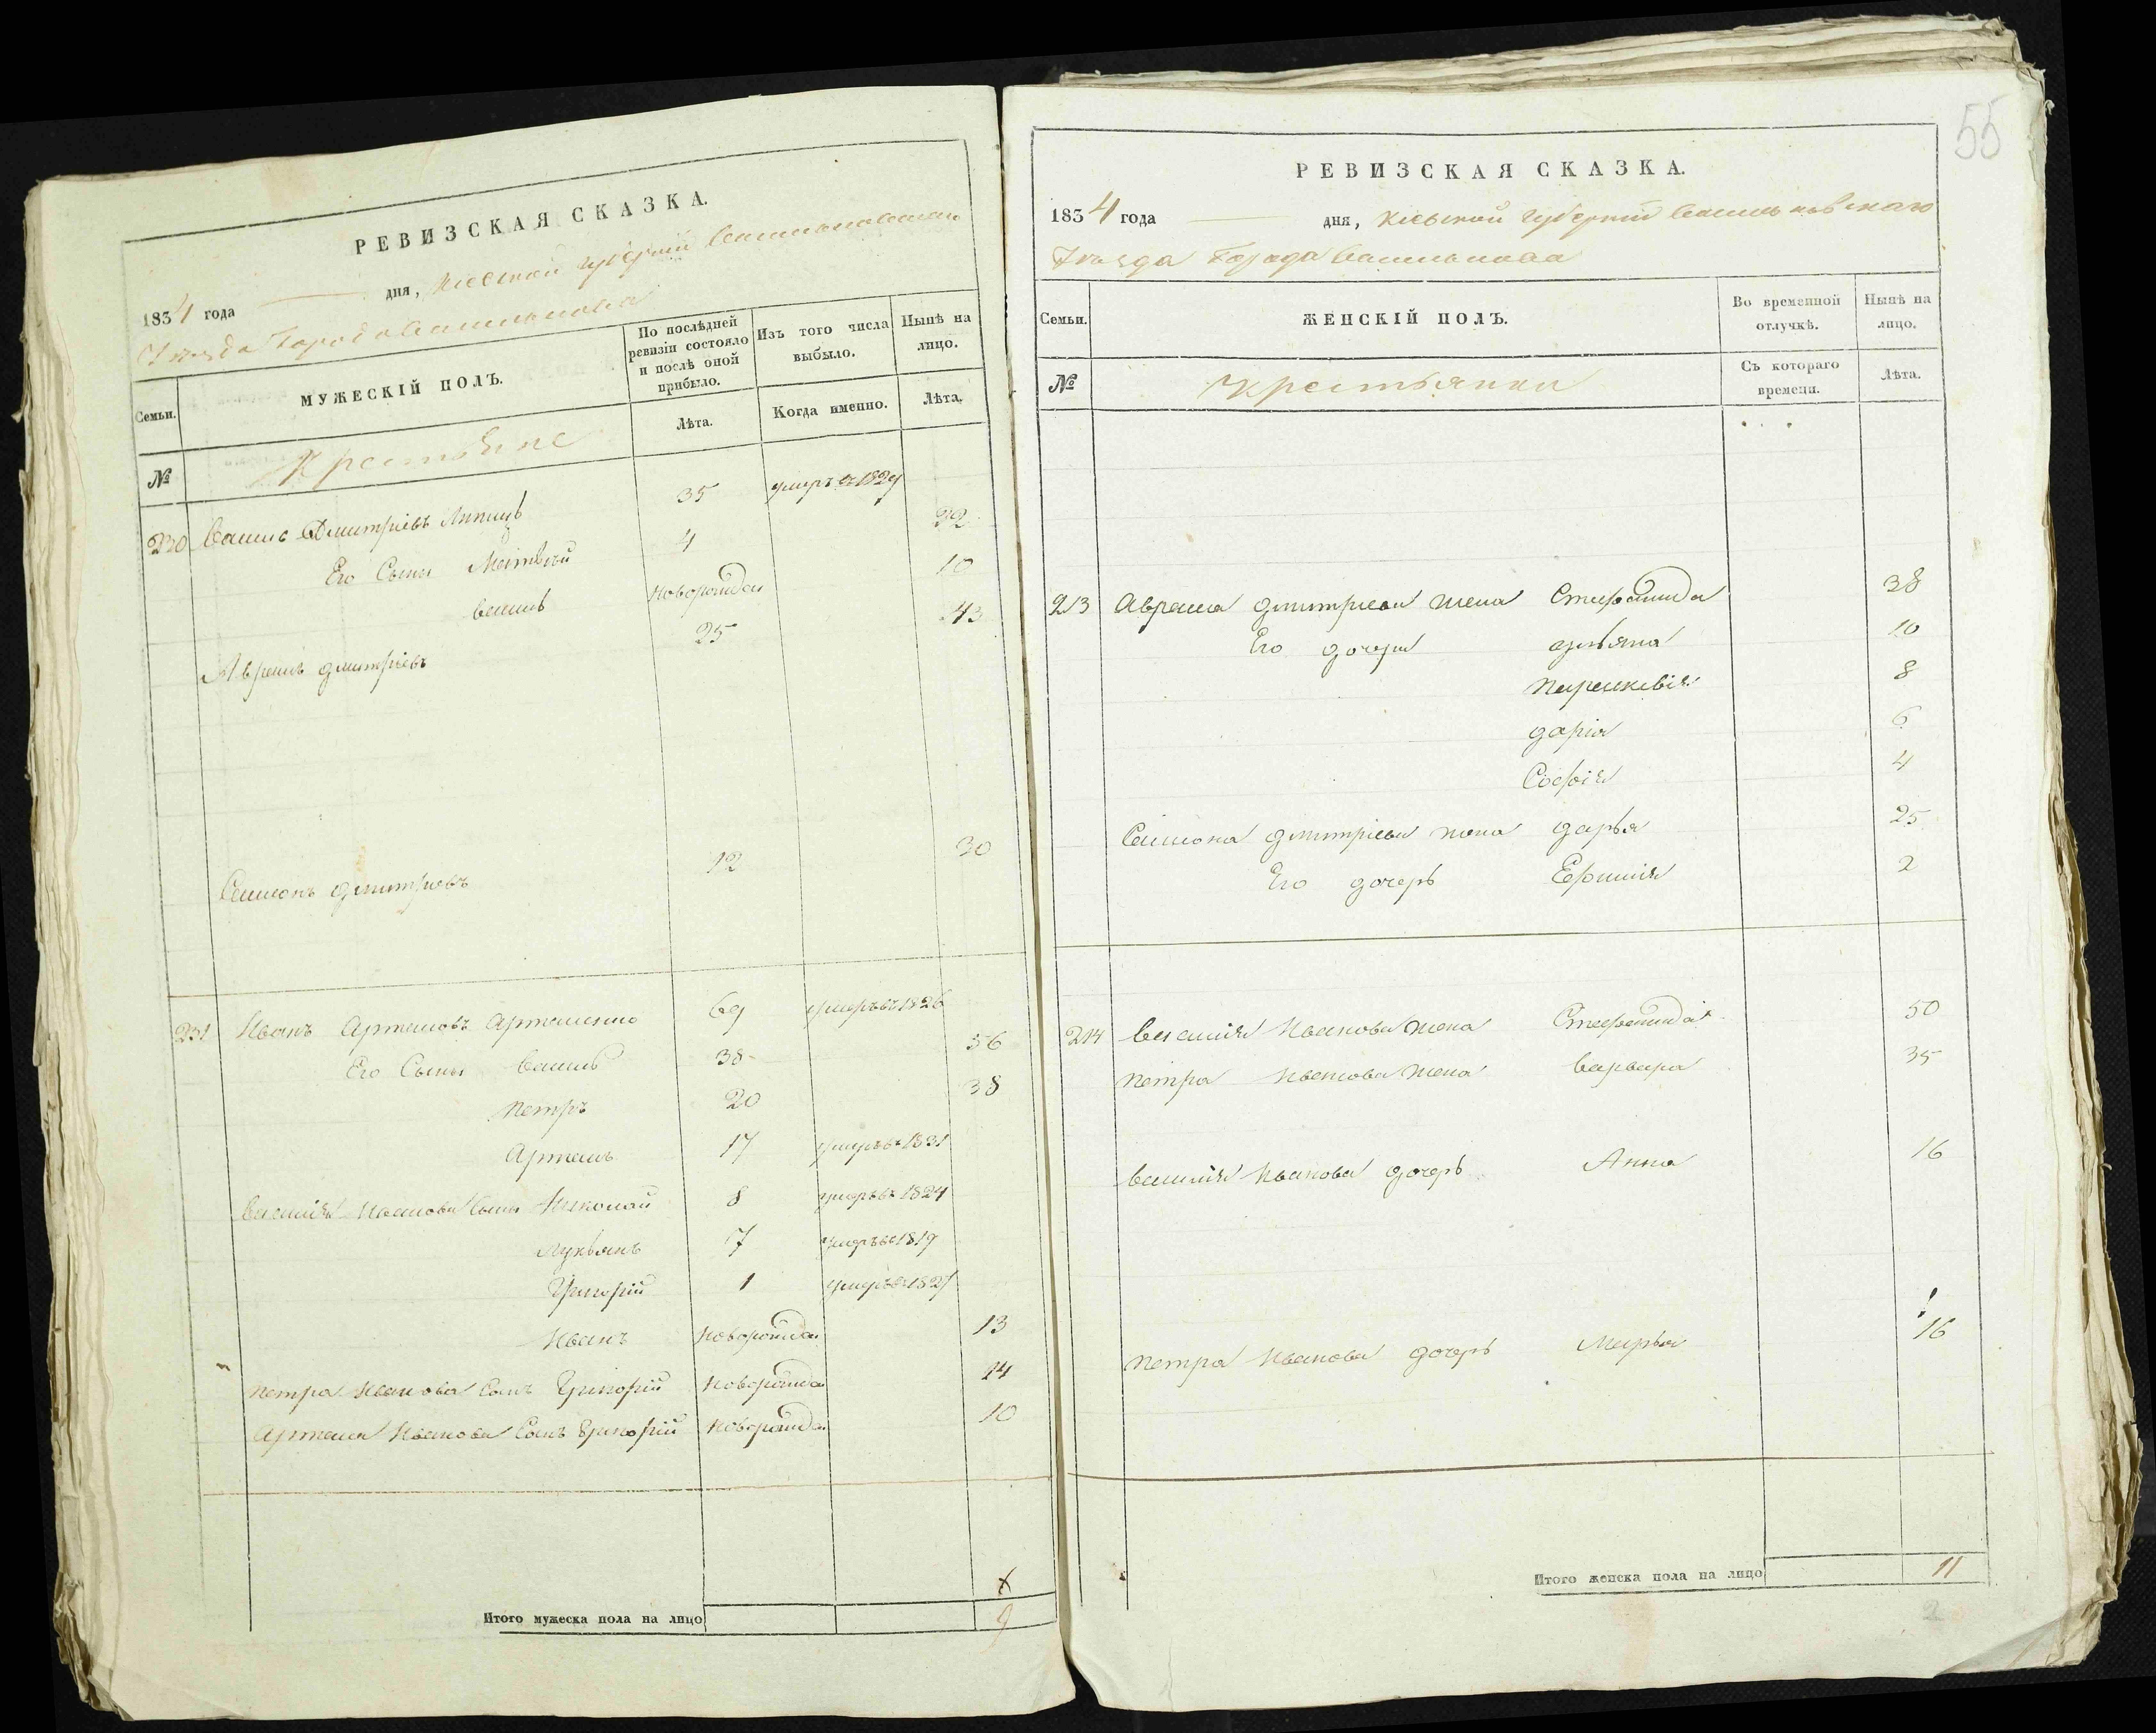 РЕВИЗСКАЯ СКАЗКА.
1834 года дня, Кіевской губерніи Васильковскаго
Уезда Города Василькова
Семьи. МУЖЕСКІЙ ПОЛЪ. По послѣдней ревизіи состояло и послѣ оной прибыло. Изъ того числа выбыло. Нынѣ на лицо.
№ Крестьяне Лѣта. Когда именно. Лѣта.
230 Василь Дмитріевъ 35 умеръ в 1829
Его Сыны Матвѣй 4 22
василь новорожден 10
Аврамъ дмитріевъ 25 43
Симионъ дмитріевъ 12 30
231 Иванъ Артемовъ Артеменко 69 умеръ въ 1826
Его Сыны василь 38 56
петръ 20 38
Артемъ 17 умеръ въ 1831
василия Иванова Сыны Николай 8 умеръ въ 1824
Лукьянъ 7 умеръ в 1819
Григорій 1 умеръ в 1821
Иванъ новорожден 13
петра Иванова Сынъ Григорій новорожден 14
Артема Иванова Сынъ Григорій новорожден 10
Итого мужеска пола на лицо 9
55
РЕВИЗСКАЯ СКАЗКА.
1834 года дня, Кіевской губерніи Васильковскаго
Уезда Города Василькова
Семьи. ЖЕНСКІЙ ПОЛЪ. Во временной отлучкѣ. Нынѣ на лицо.
№ Крестьянки Съ котораго времени. Лѣта.
213 Аврама дмитриева жена Стефанида 38
Его дочери ульяна 10
параскевія 8
дарія 6
Софія 4
Симиона дмитріева жена дарья 25
Его дочерь Ефимія 2
214 василия Иванова жена Стефанида 50
петра Иванова жена варвара 35
василия Иванова дочерь Анна 16
петра Иванова дочерь Марья 16
Итого женска пола на лицо 11
2